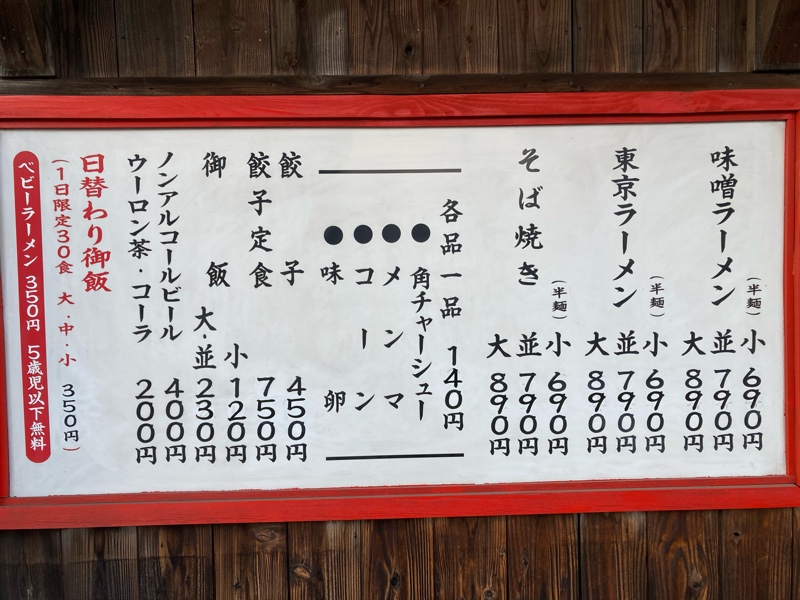 味噌ラーメン
(半麺)小 690円
並 790円
大 890円
東京ラーメン
(半麺)小 690円
並 790円
大 890円
そば焼き
(半麺)小 690円
並 790円
大 890円
各品一品 140円
●角チャーシュー
●メンマ
●コーン
●味卵
餃子 450円
餃子定食 750円
御飯 小 120円
大・並 230円
ノンアルコールビール 400円
ウーロン茶・コーラ 200円
日替わり御飯
(1日限定30食 大・中・小 350円)
ベビーラーメン 350円 5歳児以下無料